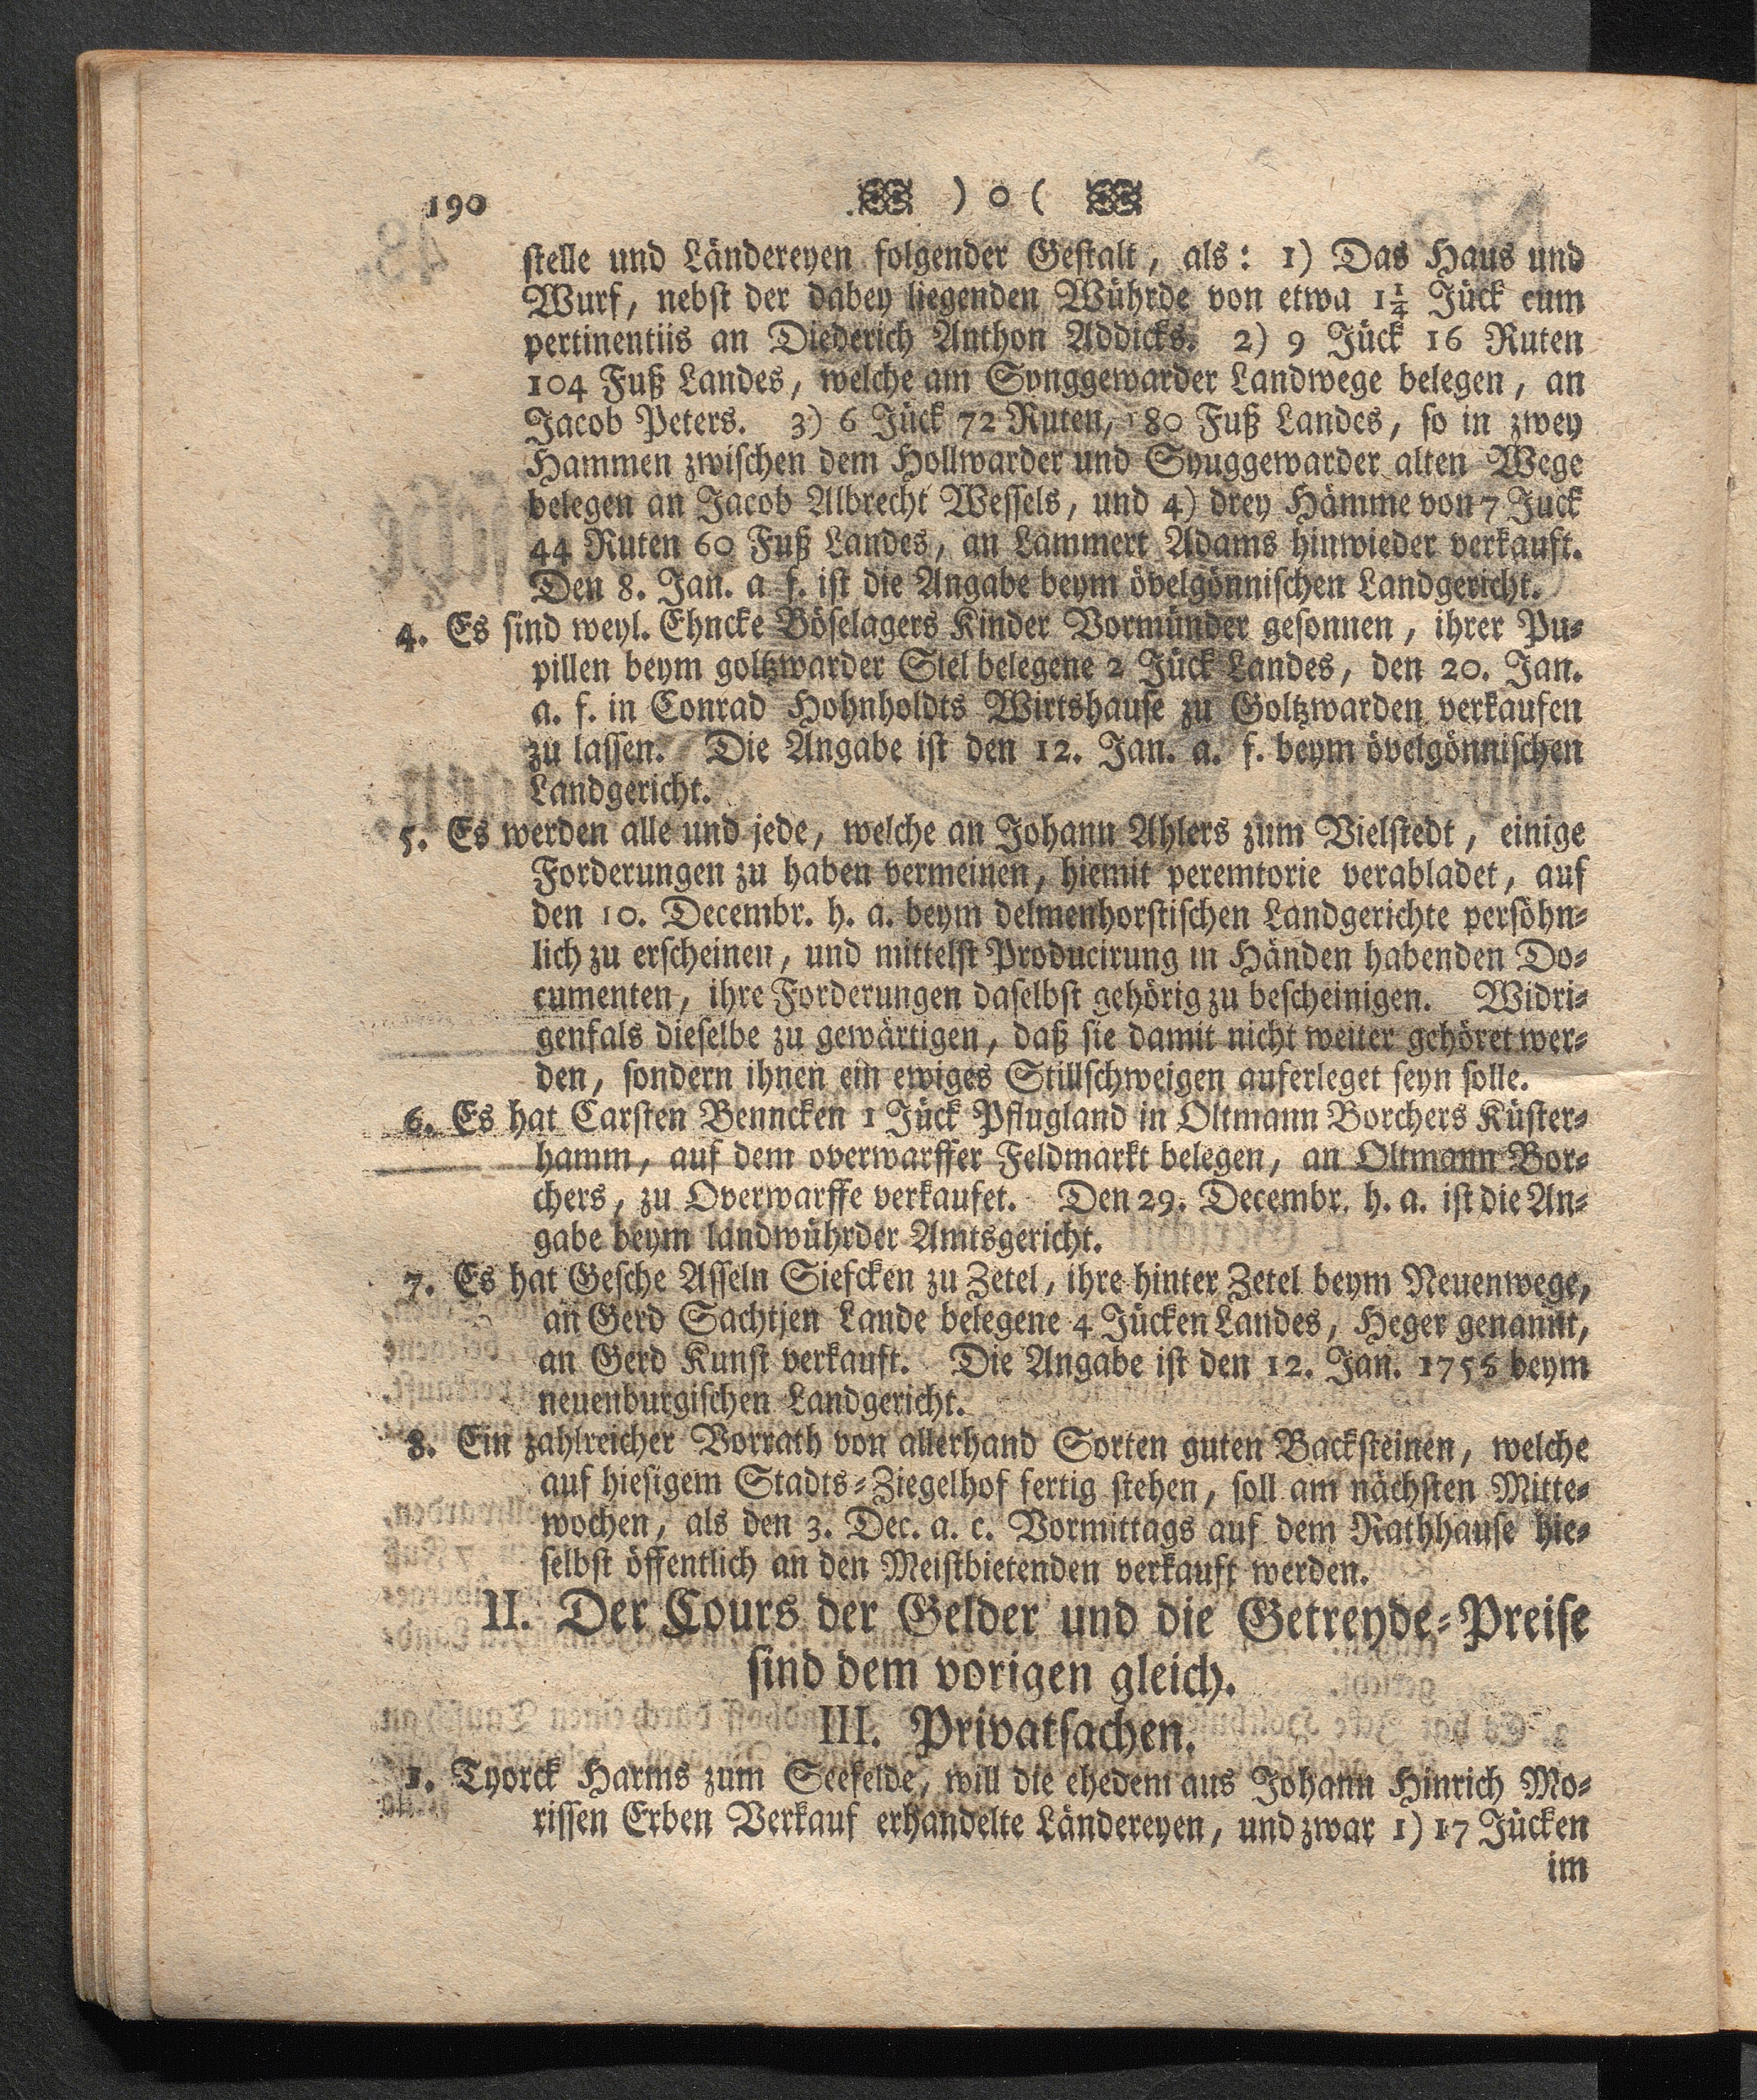 190 ) o (
stelle und Ländereyen folgender Gestalt, als: 1) Das Haus und
Wurf, nebst der dabey liegenden Wührde von etwa 1¼ Jück cum
pertinentiis an Diederich Anthon Addicks. 2) 9 Jück 16 Ruten
104 Fuß Landes, welche am Synggewarder Landwege belegen, an
Jacob Peters. 3) 6 Jück 72 Ruten, 180 Fuß Landes, so in zwey
Hammen zwischen dem Hollwarder und Synggewarder alten Wege
belegen an Jacob Albrecht Wessels, und 4) drey Hämme von 7 Juck
44 Ruten 60 Fuß Landes, an Lammert Adams hinwieder verkauft.
Den 8. Jan. a f. ist die Angabe beym övelgönnischen Landgericht.
4. Es sind weyl. Ehncke Böselagers Kinder Vormünder gesonnen, ihrer Pu-
pillen beym goltzwarder Siel belegene 2 Jück Landes, den 20. Jan.
a. f. in Conrad Hohnholdts Wirtshause zu Goltzwarden verkaufen
zu lassen. Die Angabe ist den 12. Jan. a. f. beym övelgönnischen
Landgericht.
5. Es werden alle und jede, welche an Johann Ahlers zum Vielstedt, einige
Forderungen zu haben vermeinen, hiemit peremtorie verabladet, auf
den 10. Decembr. h. a. beym delmenhorstischen Landgerichte persöhn-
lich zu erscheinen, und mittelst Producirung in Händen habenden Do-
cumenten, ihre Forderungen daselbst gehörig zu bescheinigen. Widri-
genfals dieselbe zu gewärtigen, daß sie damit nicht weiter gehöret wer-
den, sondern ihnen ein ewiges Stillschweigen auferleget seyn solle.
6. Es hat Carsten Benncken 1 Jück Pflugland in Oltmann Borchers Küster-
hamm, auf dem overwarffer Feldmarkt belegen, an Oltmann Bor-
chers, zu Overwarffe verkaufet. Den 29. Decembr. h. a. ist die An-
gabe beym landwührder Amtsgericht.
7. Es hat Gesche Asseln Siefcken zu Zetel, ihre hinter Zetel beym Neuenwege,
an Gerd Sachtjen Lande belegene 4 Jücken Landes, Heger genannt,
an Gerd Kunst verkauft. Die Angabe ist den 12. Jan. 1756 beym
neuenburgischen Landgericht.
8. Ein zahlreicher Vorrath von allerhand Sorten guten Backsteinen, welche
auf hiesigem Stadts-Ziegelhof fertig stehen, soll am nächsten Mitte-
wochen, als den 3. Dec. a. c. Vormittags auf dem Rathhause hie-
selbst öffentlich an den Meistbietenden verkauft werden.
II. Der Cours der Gelder und die Getreyde-Preise
sind dem vorigen gleich.
III. Privatsachen.
1. Tyorck Harms zum Seefelde, will die ehedem aus Johann Hinrich Mo-
rissen Erben Verkauf erhandelte Ländereyen, und zwar 1) 17 Jücken
im